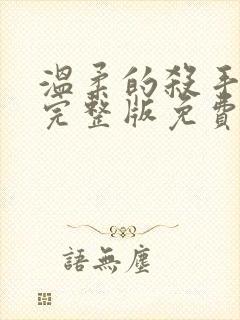 溫柔的殺手
完整版免費
語無塵